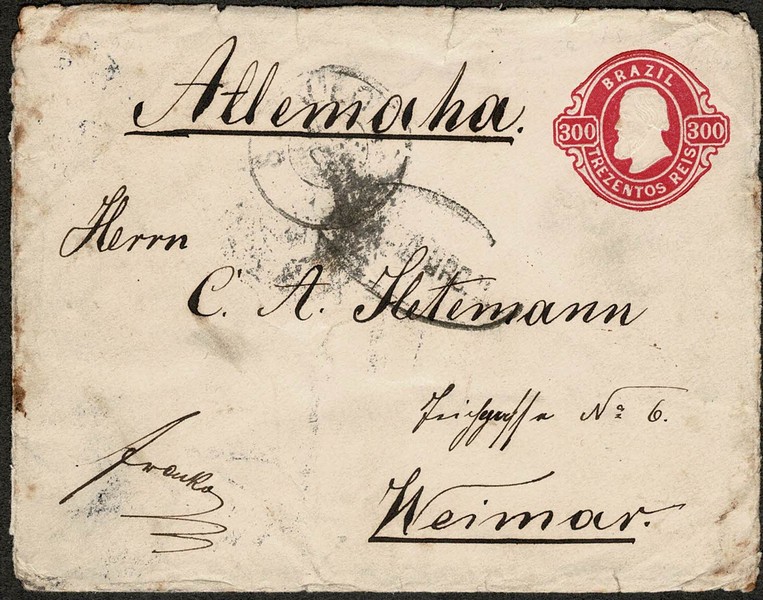 Allemanha.
BRAZIL
300 300
TREZENTOS REIS
Herrn
C. A. Hetemann
Teichgasse No 6.
franko
Weimar.